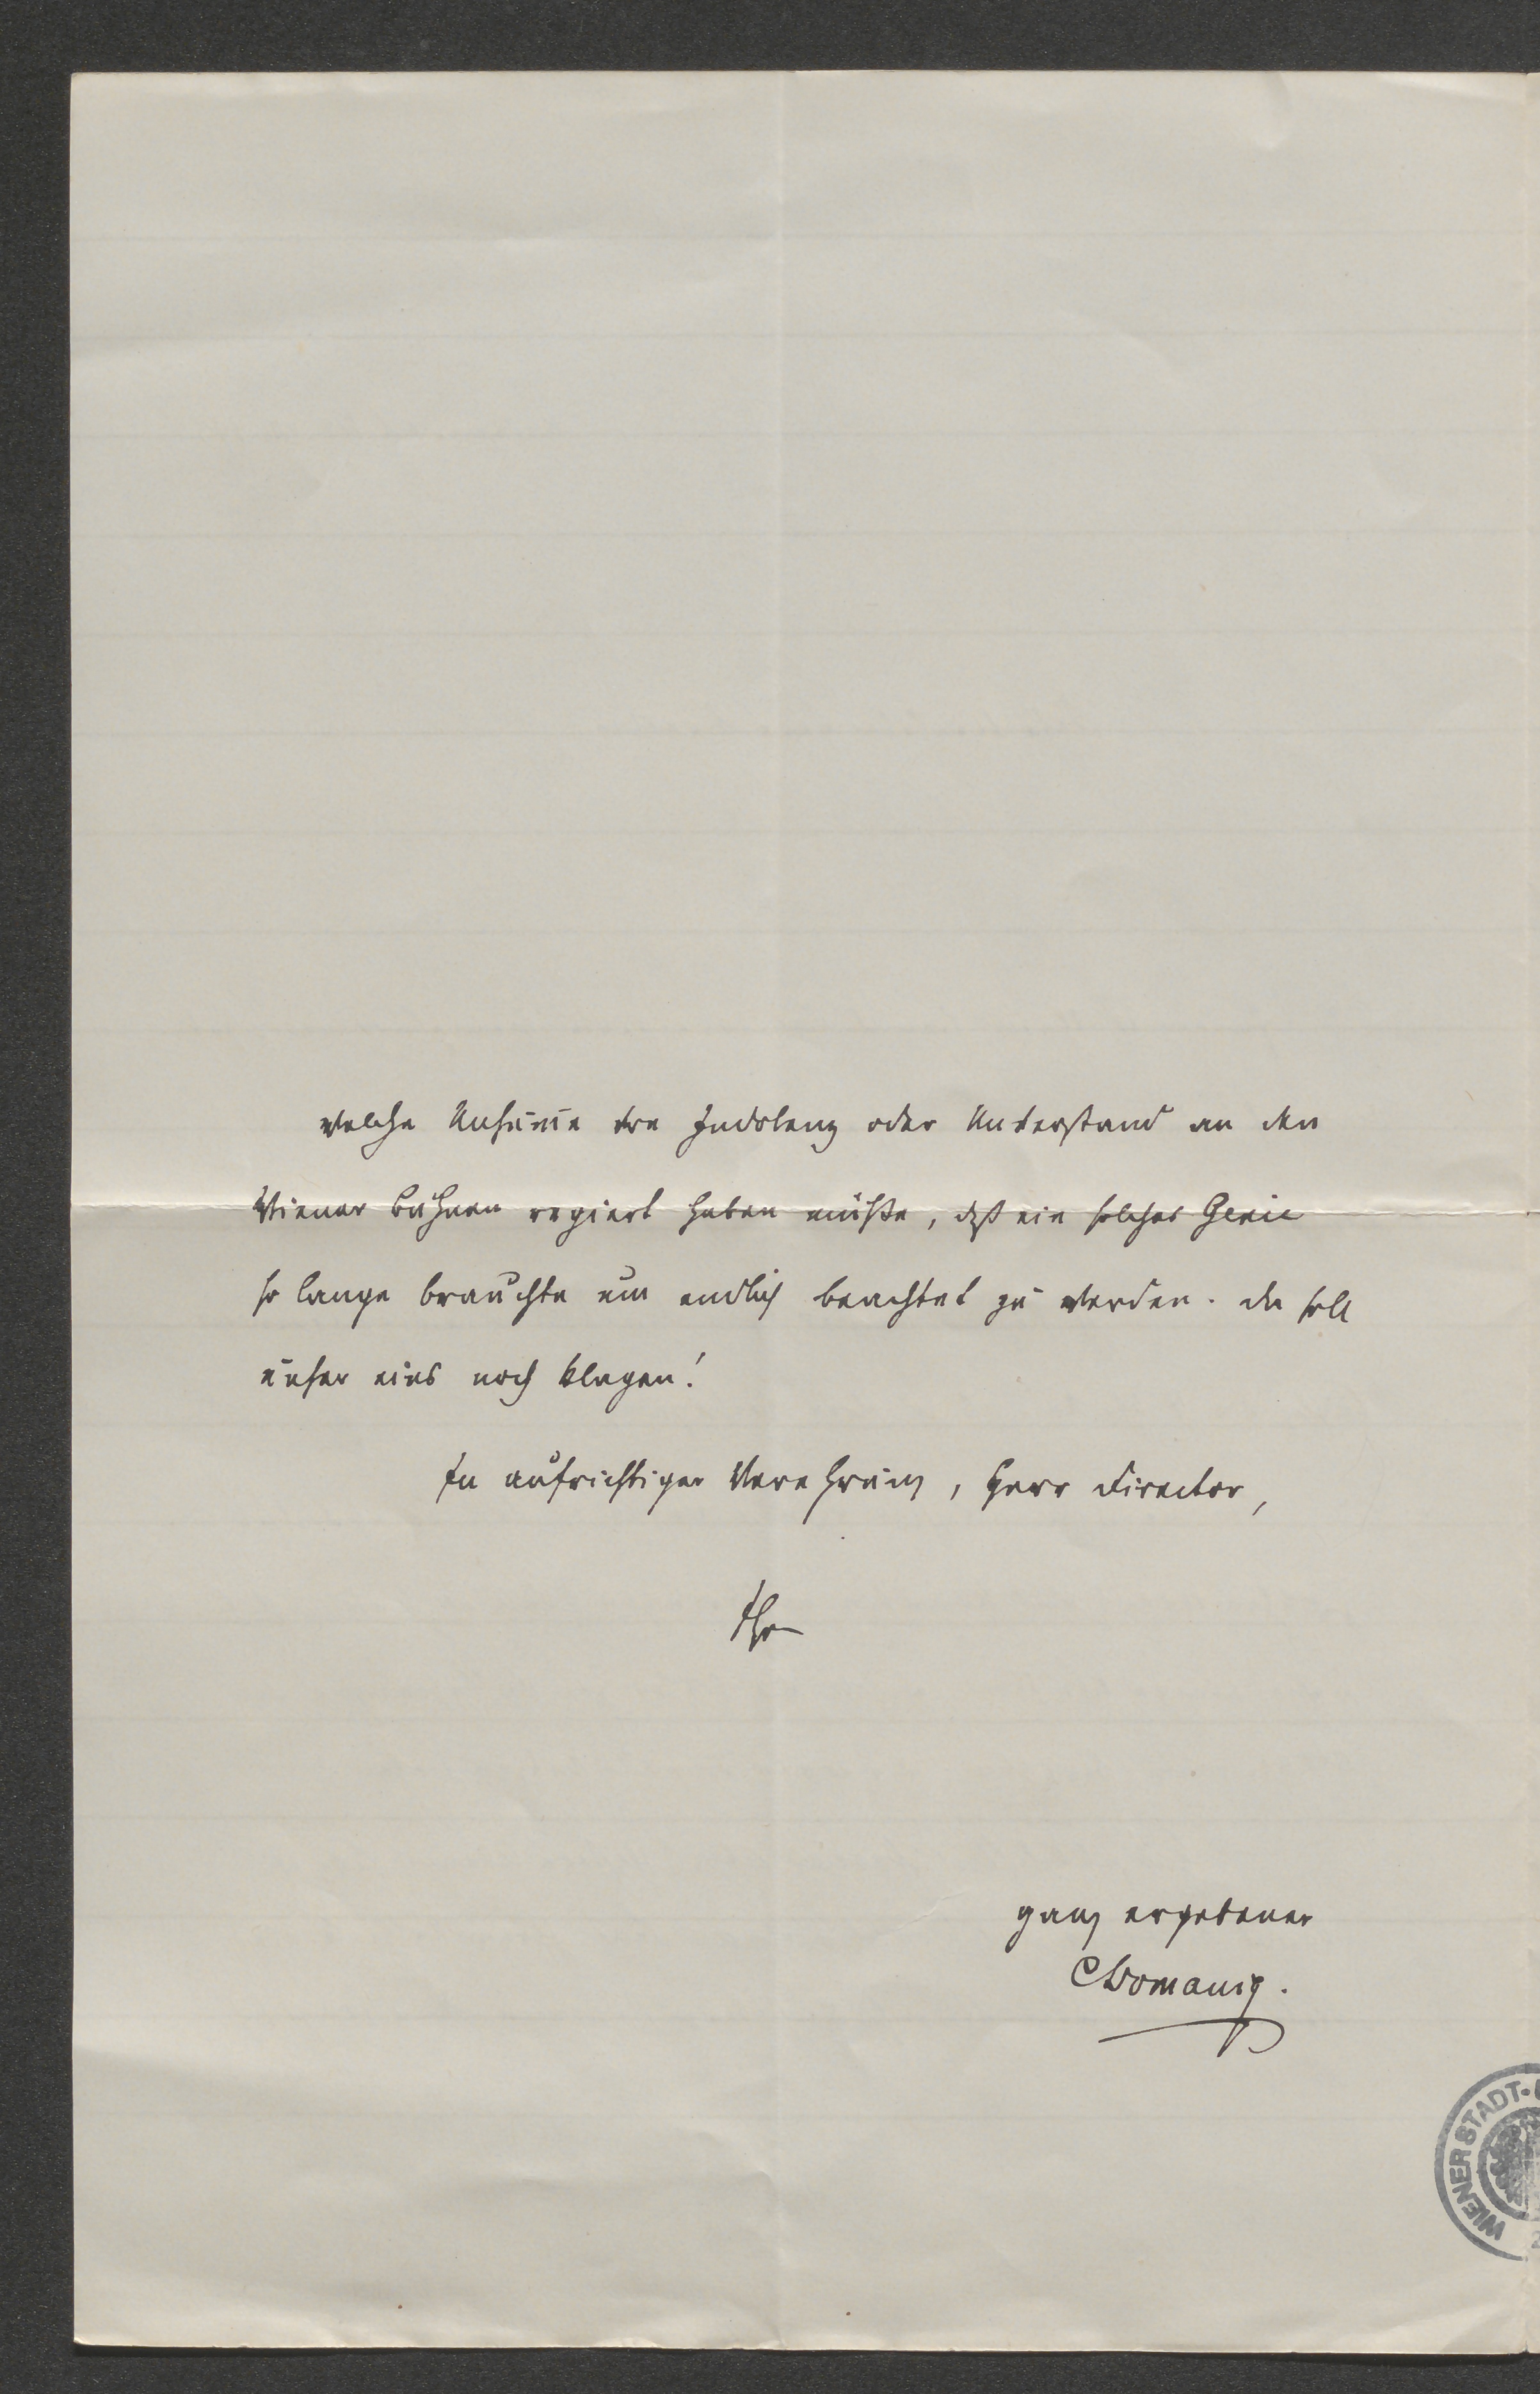 welche Unsumme von Indolenz oder Unverstand an den
Wiener Bühnen regiert haben müßte, daß ein solches Genie
so lange brauchte um endlich beachtet zu werden. Da soll
unser eins noch klagen!
In aufrichtiger Verehrung, Herr Director,
Ihr
ganz ergebener
CDomanig.
WIENER STADT-